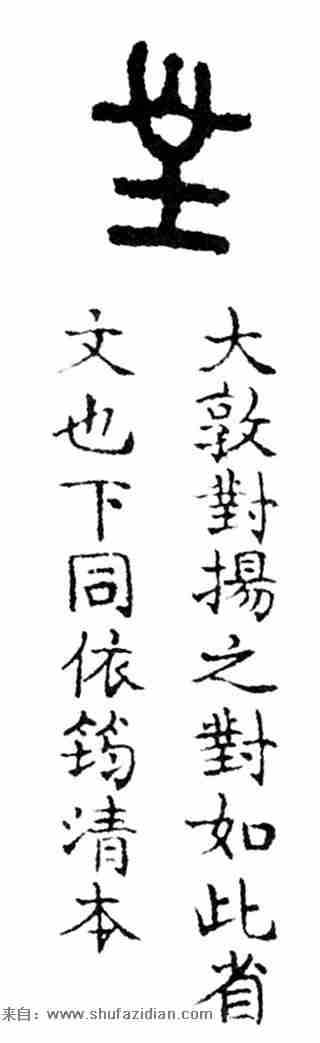 大敦對揚之對如此省
文也下同依筠清本
来自：www.shufazidian.com